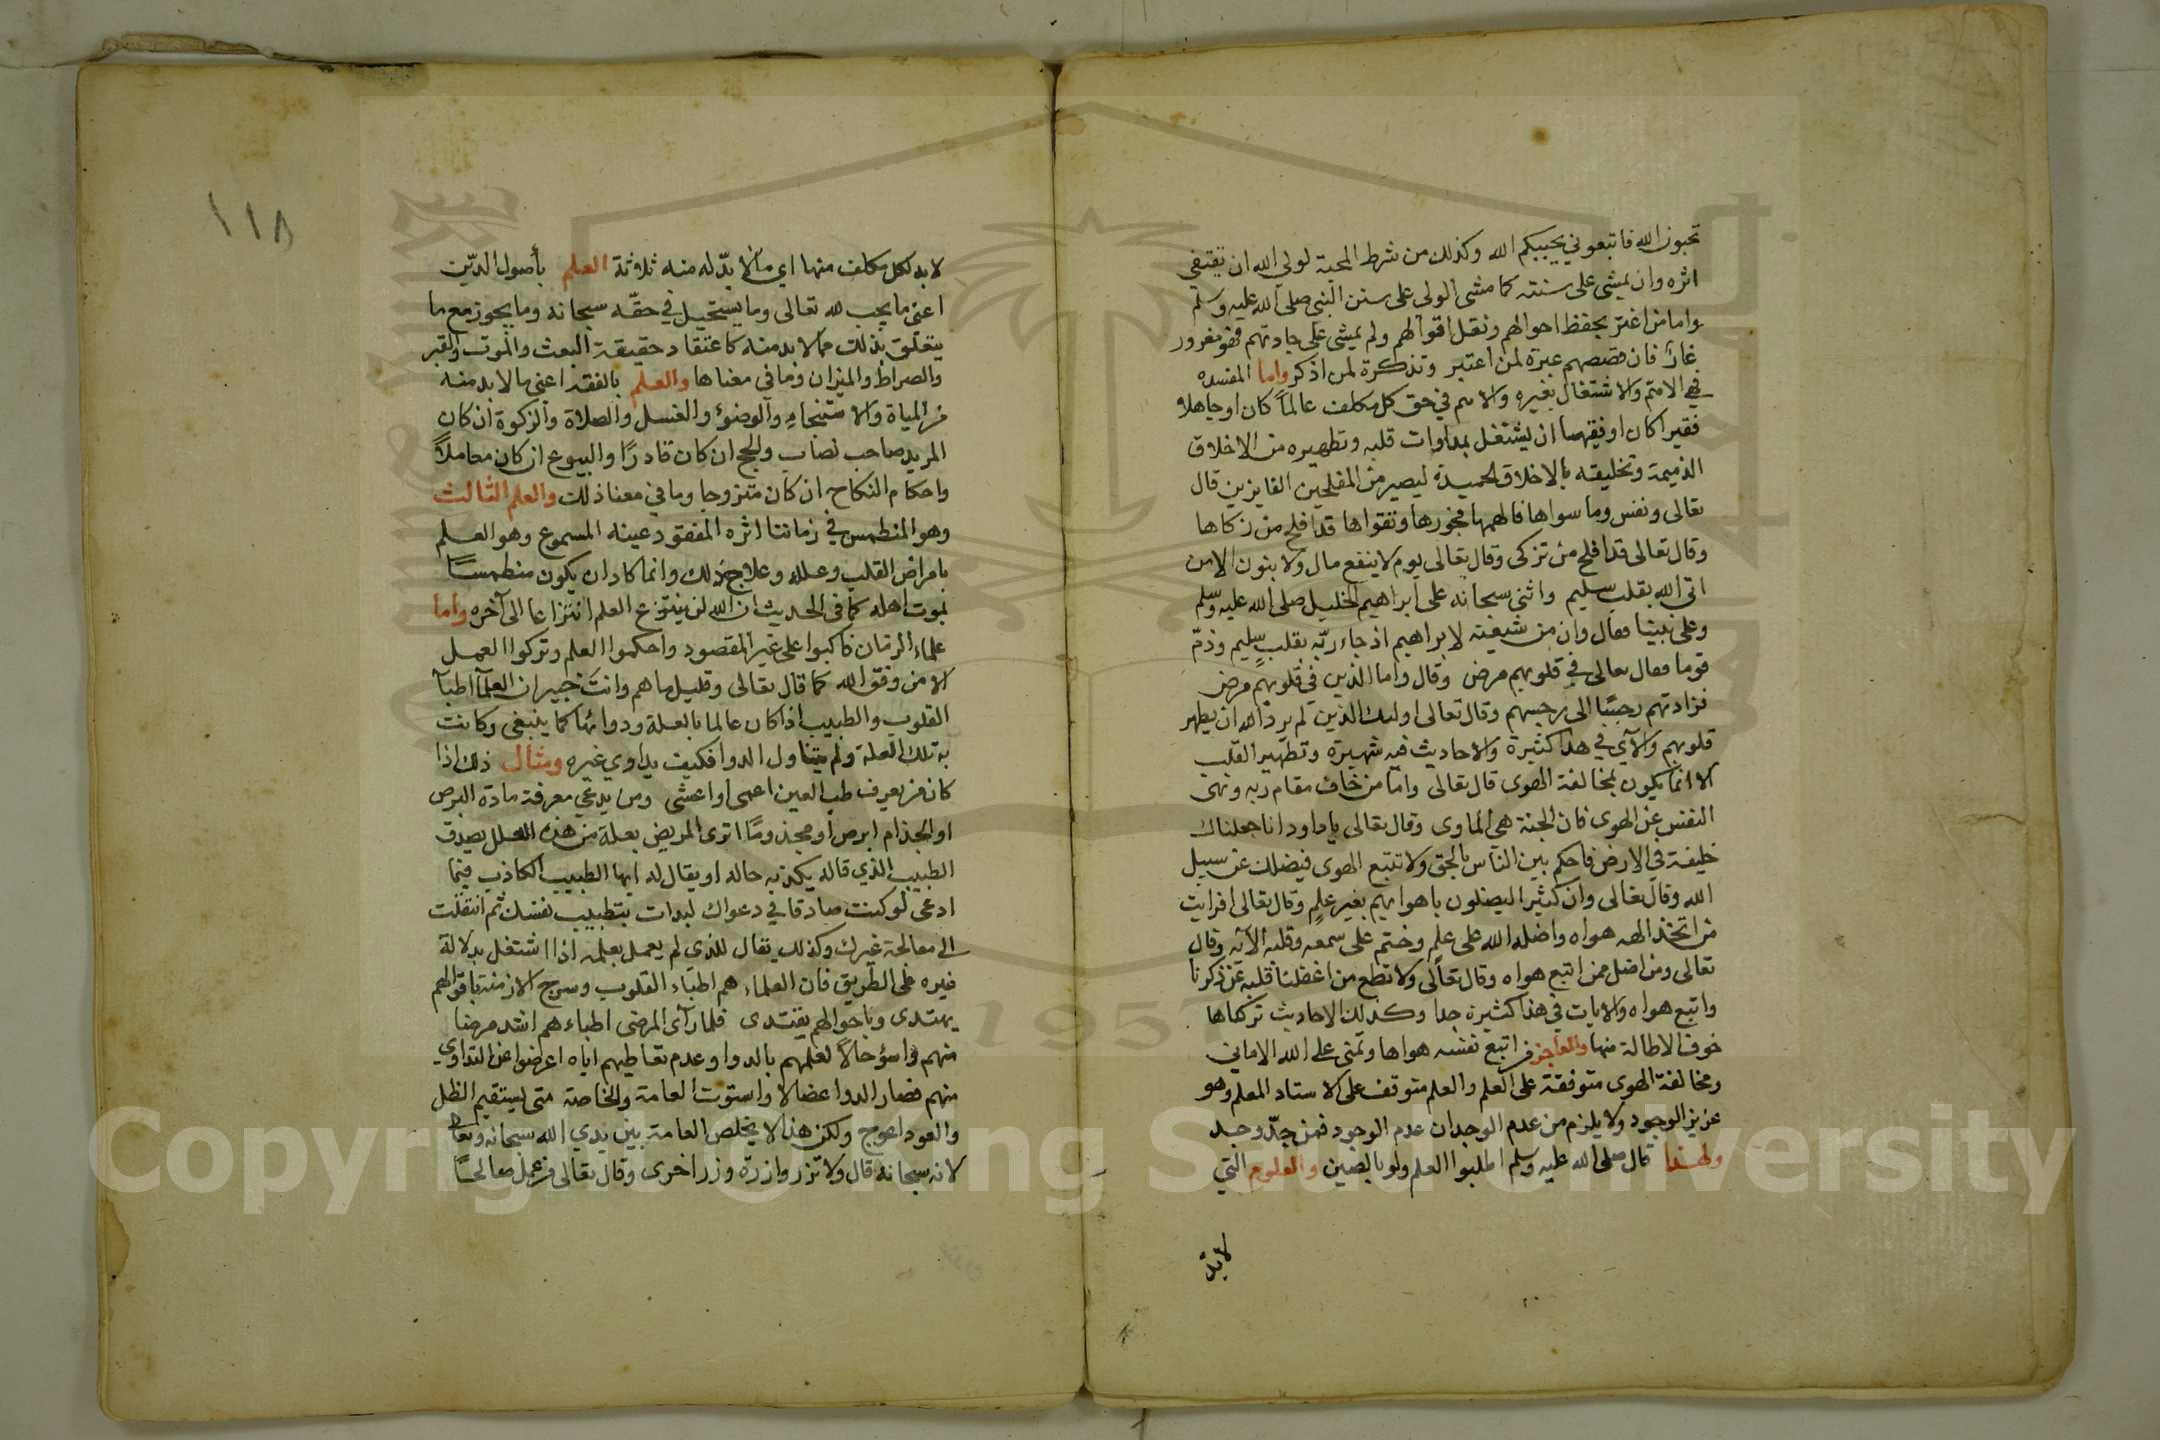 تحبون الله فاتبعوني يحببكم الله وكذلك من شرط المحبة لولي الله ان يقتفي
اثره وان يمشي على سنته كما مشى الولي على سنن النبي صلى الله عليه وسلم
واما من اغتر بحفظ احوالهم ونقل اقوالهم ولم يمشي على جادتهم فهو مغرور
غارّ فان قصصهم عبرة لمن اعتبر وتذكرة لمن اذكر واما المفسده
هي الامتم والاشتغال بغيره والاهم في حق كل مكلف عالماً كان او جاهلا
فقيرا كان او فقيها ان يشتغل بمداوات قلبه وتطهيره من الاخلاق
الذميمة وتخليقه بالاخلاق الحميدة ليصير من المفلحين الفايزين قال
تعالى ونفس وما سواها فالهمها فجورها وتقواها قد افلح من زكاها
وقال تعالى قد افلح من تزكى وقال تعالى يوم لا ينفع مال ولا بنون الا من
اتى الله بقلب سليم واثنى سبحانه على ابراهيم الخليل صلى الله عليه وسلم
وعلى نبينا فقال وان من شيعته لابراهيم اذ جاء ربّه بقلبٍ سليم وذمّ
قوما فقال تعالى في قلوبهم مرض وقال واما الذين في قلوبهم مرض
فزادتهم رجسًا الى رجسهم وقال تعالى اولئك الذين لم يرد الله ان يطهر
قلوبهم والآي في هذا كثيرة والاحاديث فيه شهيرة وتطهير القلب
الا انما يكون بمخالفة الهوى قال تعالى واما من خاف مقام ربه ونهى
النفس عن الهوى فان الجنة هي الماوى وقال تعالى يا داود انا جعلناك
خليفة في الارض فاحكم بين الناس بالحق ولا تتبع الهوى فيضلك عن سبيل
الله وقال تعالى وان كثيرا ليضلون باهوايهم بغير علم وقال تعالى افرايت
من اتخذ الهه هواه واضله الله على علم وختم على سمعه وقلبه الآية وقال
تعالى ومن اضل ممن اتبع هواه وقال تعالى ولا تطع من اغفلنا قلبه عن ذكرنا
واتبع هواه والايات في هذا كثيرة جدا وكذلك الاحاديث تركناها
خوف الاطالة منها والعاجز من اتبع نفسه هواها وتمنى على الله الاماني
ومخالفة الهوى متوفقة على العلم والعلم متوقف على الاستاد المعلم وهو
عزيز الوجود ولا يلزم من عدم الوجدان عدم الوجود فمن جدّ وجد
ولهذا قال صلى الله عليه وسلم اطلبوا العلم ولو بالصين والعلوم التي
لابدّ
١١٨
لابد لكل مكلف منها اي مالا بدّ له منه ثلاثة العلم بأصول الدين
اعني ما يجب لله تعالى وما يستحيل في حقّه سبحانه وما يجوز مع ما
يتعلق بذلك مما لابد منه كاعتقاد حقيقة البعث والموت والقبر
والصراط والميزان وما في معناها والعلم بالفقه اعني مالابد منه
من المياة والاستنجاء والوضوء والغسل والصلاة والزكوة ان كان
المريد صاحب نصاب والحج ان كان قادرًا والبيوع ان كان معاملاً
واحكام النكاح ان كان متزوجا وما في معنا ذلك والعلم الثالث
وهو المنطمس في زماننا اثره المفقود عينه المسموع وهو العلم
بامراض القلب وعلله وعلاج ذلك وانما كاد ان يكون منطمسًا
بموت اهله كما في الحديث ان الله لن ينتزع العلم انتزاعا الى آخره واما
علماء الزمان فاكبوا على غير المقصود واحكموا العلم وتركوا العمل
الا من وفق الله كما قال تعالى وقليل ما هم وانت خبير ان العلماء اطبآ
القلوب والطبيب اذا كان عالما بالعلة ودوائها كما ينبغي وكانت
به تلك العلة ولم يتناول الدوا فكيف يداوي غيره ومثال ذلك اذا
كان من يعرف طب العين اعمى او اعشى ومن يدعي معرفة مادة البرص
او الجذام ابرص او مجذومًا اترى المريض بعلة من هذه العلل يصدق
الطبيب الذي قاله يكذبه حاله او يقال له ايها الطبيب الكاذب فيما
ادعى لو كنت صادقا في دعواك لبدات بتطبيب نفسك ثم انتقلت
الى معالجة غيرك وكذلك يقال للذي لم يعمل بعلمه اذا اشتغل بدلالة
غيره على الطريق فان العلماء هم اطبّاء القلوب وسرج الازمنة باقوالهم
يهتدى وباحوالهم يقتدى فلما رآى المرضى اطباءهم اشد مرضا
منهم واسوء حالاً لعلمهم بالدوا وعدم تعاطيهم اياه اعرضوا عن التداوي
منهم فصار الدوا عضالا واستوت العامة والخاصة متى يستقيم الظل
والعود اعوج ولكن هذا لا يخلص العامة بين يدي الله سبحانه وتعالى
لانه سبحانه قال ولا تزر وازرة وزر اخرى وقال تعالى من عمل صالحًا
Copyright © King Saud University
1957